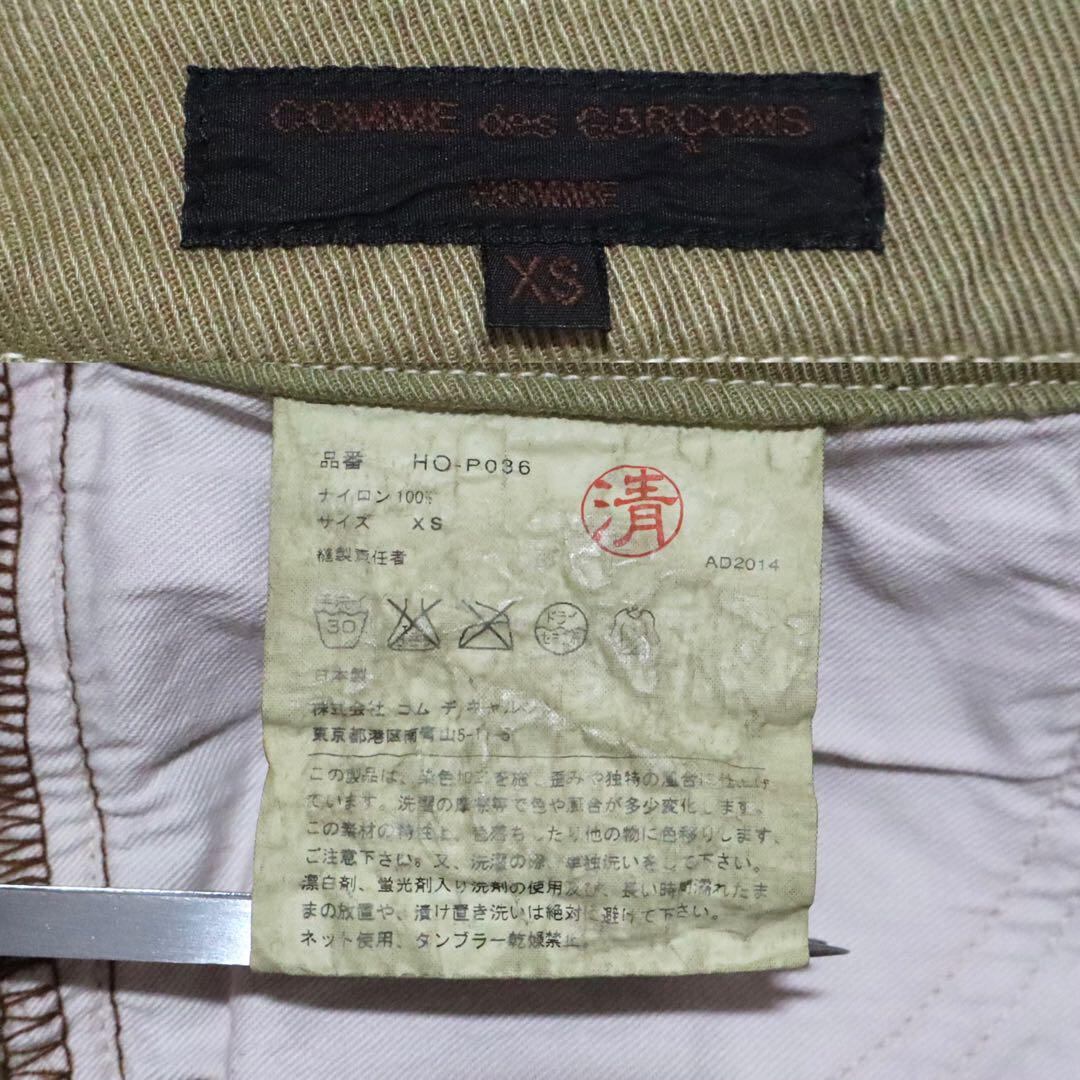 COMME des GARÇONS
HOMME
XS
品番 HO-P036
ナイロン100%
サイズ XS
清
縫製責任者
AD2014
30
ドライ
セキユ系
日本製
株式会社 コム デ ギャルソン
東京都港区南青山5-11-5
この製品は、染色加工を施し歪みや独特の風合に仕上げ
ています。洗濯の摩擦等で色や風合が多少変化します。
この素材の特性上、色落ちしたり他の物に色移りします、
ご注意下さい。又、洗濯の際、単独洗いをして下さい。
漂白剤、蛍光剤入り洗剤の使用及び、長い時間濡れたま
まの放置や、漬け置き洗いは絶対に避けて下さい。
ネット使用、タンブラー乾燥禁止。